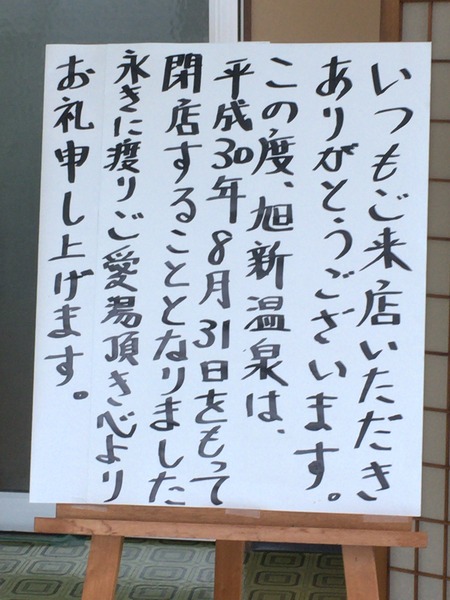 いつもご来店いただき
ありがとうございます。
この度、旭新温泉は、
平成30年8月31日をもって
閉店することとなりました
永きに渡りご愛湯頂き心より
お礼申し上げます。